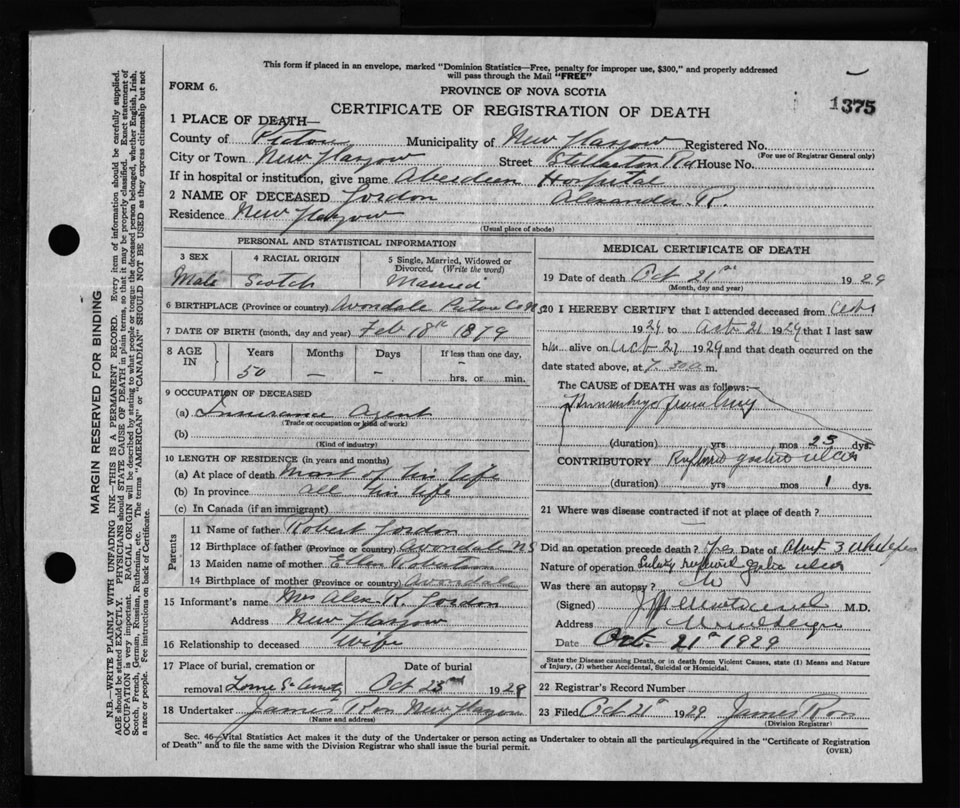 This form if placed in an envelope, marked "Dominion Statistics—Free, penalty for improper use, $300," and properly addressed
will pass through the Mail "FREE"
FORM 6.
PROVINCE OF NOVA SCOTIA
1375
CERTIFICATE OF REGISTRATION OF DEATH
1 PLACE OF DEATH—
County of Pictou Municipality of New Glasgow Registered No.
(For use of Registrar General only)
City or Town New Glasgow Street Stellarton Rd House No.
If in hospital or institution, give name Aberdeen Hospital
2 NAME OF DECEASED Gordon Alexander R.
Residence New Glasgow
(Usual place of abode)
PERSONAL AND STATISTICAL INFORMATION
3 SEX
Male
4 RACIAL ORIGIN
Scotch
5 Single, Married, Widowed or
Divorced. (Write the word)
Married
6 BIRTHPLACE (Province or country) Avondale Pictou Co NS
7 DATE OF BIRTH (month, day and year) Feb 18th 1879
8 AGE IN
Years Months Days If less than one day,
50 — — hrs. or min.
9 OCCUPATION OF DECEASED
(a) Insurance Agent
(Trade or occupation or kind of work)
(b)
(Kind of industry)
10 LENGTH OF RESIDENCE (in years and months)
(a) At place of death Most of his life
(b) In province all his life
(c) In Canada (if an immigrant)
Parents
11 Name of father Robert Gordon
12 Birthplace of father (Province or country) Avondale NS
13 Maiden name of mother Ellen Robertson
14 Birthplace of mother (Province or country) Avondale
15 Informant's name Mrs Alex R. Gordon
Address New Glasgow
16 Relationship to deceased Wife
17 Place of burial, cremation or Date of burial
removal Lorne St Cemty Oct 23rd 1929
18 Undertaker James Ross New Glasgow
(Name and address)
MEDICAL CERTIFICATE OF DEATH
19 Date of death Oct 21st 1929
(Month, day and year)
20 I HEREBY CERTIFY that I attended deceased from Oct 1
1929 to Oct 21 1929 that I last saw
him alive on Oct 21 1929 and that death occurred on the
date stated above, at 7.30 a. m.
The CAUSE of DEATH was as follows:—
(duration) yrs mos 23 dys.
CONTRIBUTORY Ruptured gastric ulcer
(duration) yrs mos 1 dys.
21 Where was disease contracted if not at place of death?
Did an operation precede death? Yes Date of
Nature of operation gastric ulcer
Was there an autopsy? No
(Signed) M.D.
Address New Glasgow
Date Oct. 21st 1929
State the Disease causing Death, or in death from Violent Causes, state (1) Means and Nature
of Injury, (2) whether Accidental, Suicidal or Homicidal.
22 Registrar's Record Number
23 Filed Oct 21st 1929 James Ross
(Division Registrar)
Sec. 46—Vital Statistics Act makes it the duty of the Undertaker or person acting as Undertaker to obtain all the particulars required in the "Certificate of Registration
of Death" and to file the same with the Division Registrar who shall issue the burial permit.
(OVER)
MARGIN RESERVED FOR BINDING
N.B.—WRITE PLAINLY WITH UNFADING INK—THIS IS A PERMANENT RECORD. Every item of information should be carefully supplied.
AGE should be stated EXACTLY. PHYSICIANS should STATE CAUSE OF DEATH in plain terms, so that it may be properly classified. Exact statement of
OCCUPATION is very important. RACIAL ORIGIN will be described by stating to what people or tongue the deceased person belonged, whether English, Irish,
Scotch, French, German, Russian, Ruthenian, etc. The terms "AMERICAN" or "CANADIAN" SHOULD NOT BE USED as they express citizenship but not
a race or people. Fee instructions on back of Certificate.